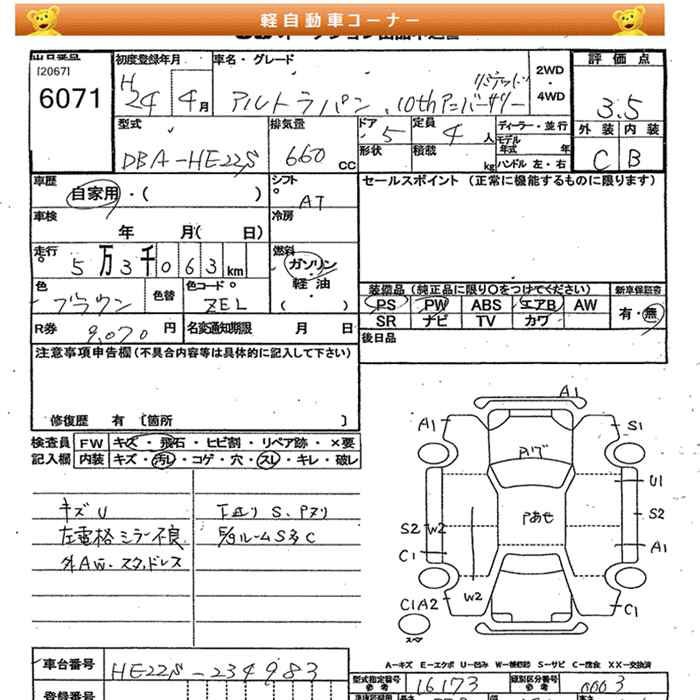 軽自動車コーナー
出品番号
[2067]
6071
初度登録年月
H24
4月
車名・グレード
アルトラパン 10thアニバーサリー
リミテッド
2WD
・
4WD
評価点
3.5
外装 内装
C B
型式
DBA-HE22S
排気量
660 CC
ドア 5
形状
定員 4人
積載 kg
ディーラー・並行
モデル年式 年
ハンドル 左・右
車歴
自家用・( )
シフト
AT
セールスポイント (正常に機能するものに限ります)
車検
年 月( 日)
冷房
走行
5万3千063km
燃料
ガソリン
・
軽油
( )
色
ブラウン
色替
色コードNo.
ZEL
装備品(純正品に限り○をつけてください)
PS PW ABS エアB AW
SR ナビ TV カワ
新車保証書
有・無
R券 9,070円
名変通知期限 月 日
後日品
注意事項申告欄(不具合内容等は具体的に記入して下さい)
修復歴 有 〔箇所 〕
検査員記入欄
FW キズ・飛石・ヒビ割・リペア跡・×要
内装 キズ・汚レ・コゲ・穴・スレ・キレ・破レ
キズU
左電格ミラー不良
外AW・スタッドレス
下廻りS、Pヌリ
E/gルームS多C
A1
A1
S1
Pハゲ
U1
Pあせ
S2
S2 W2
C1
A1
W2
C1A2
C1
スペア
A-キズ E-エクボ U-凹み W-補修跡 S-サビ C-腐食 XX-交換済
車台番号
HE22S-234983
型式指定番号
参考
16173
類別区分番号
参考
0003
登録番号